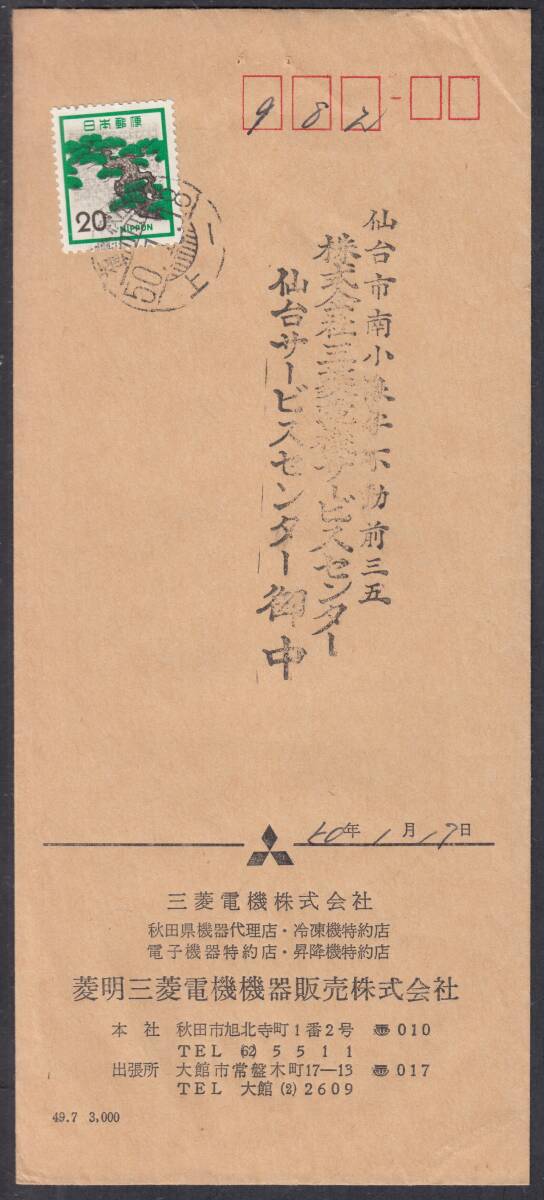 982
日本郵便
20
NIPPON
50.
仙台市南小泉字不動前三五
株式会社三菱電機サービスセンター
仙台サービスセンター御中
50年1月17日
三菱電機株式会社
秋田県機器代理店・冷凍機特約店
電子機器特約店・昇降機特約店
菱明三菱電機機器販売株式会社
本社 秋田市旭北寺町1番2号 〠010
TEL (62) 5511
出張所 大館市常盤木町17—13 〠017
TEL 大館(2)2609
49.7 3,000